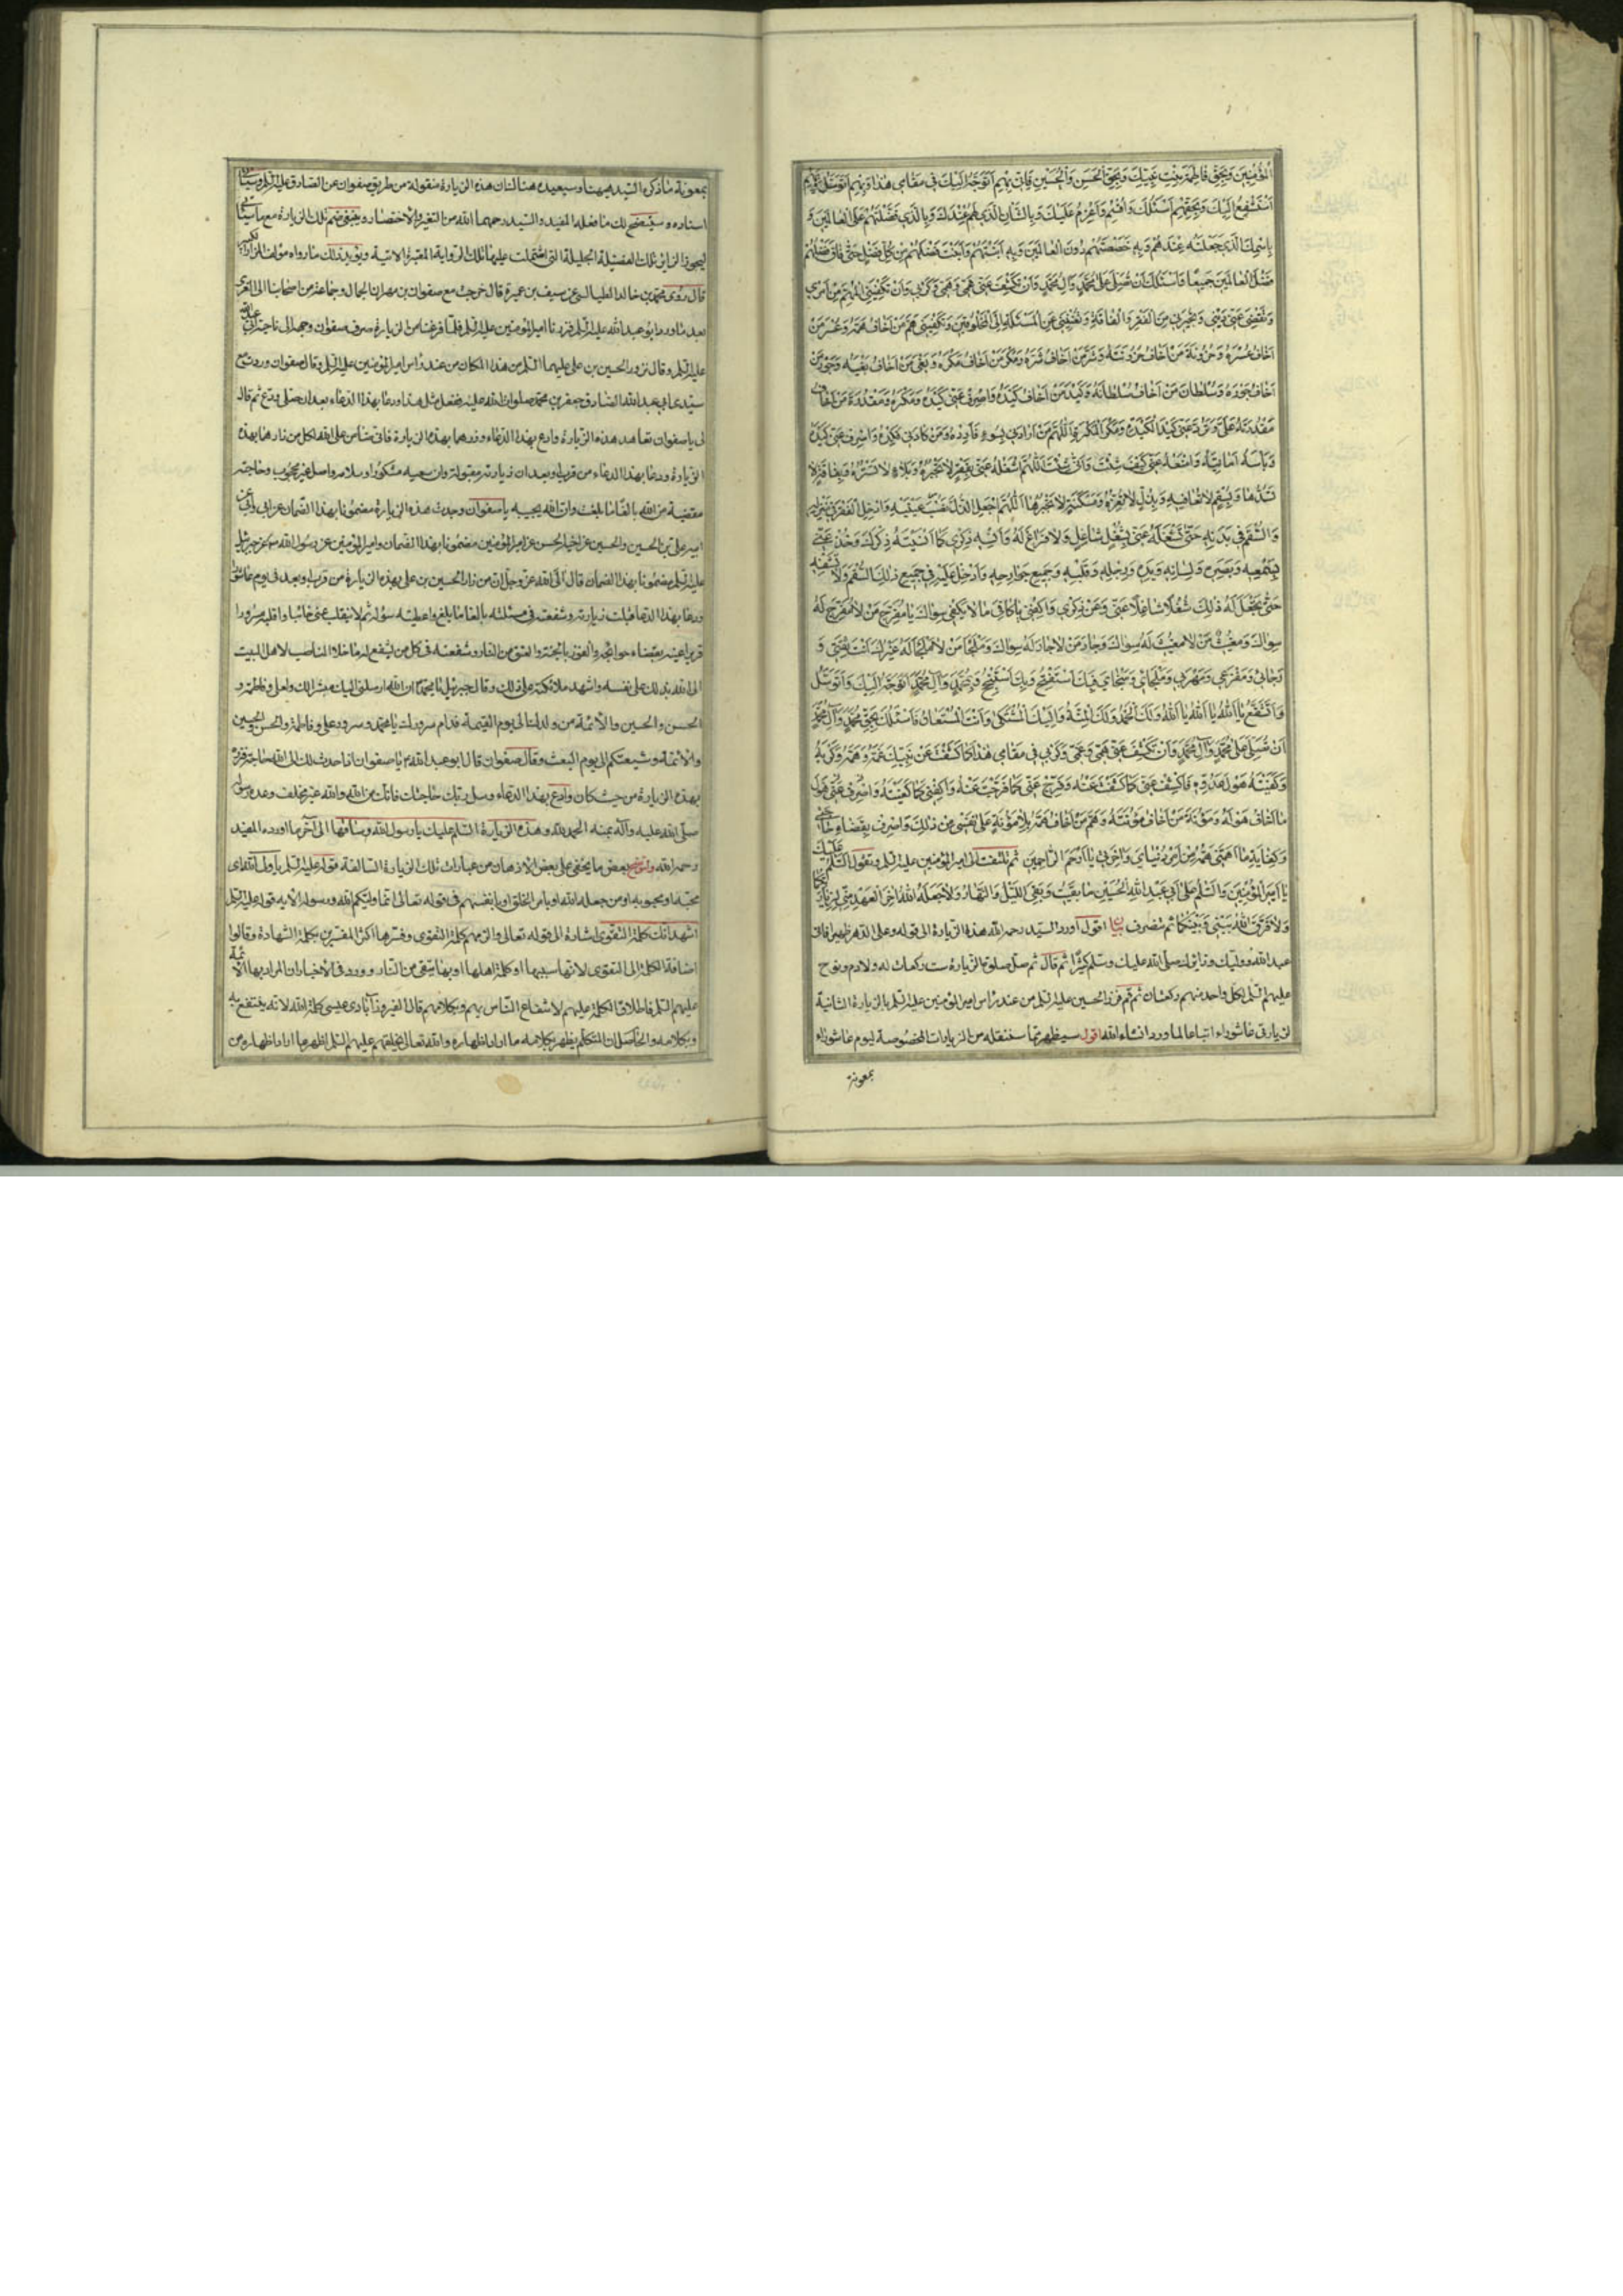 المؤمنين وبحق فاطمة بنت نبيك وبحق الحسن والحسين فاني بهم اتوجه اليك في مقامي هذا وبهم اتوسل وبهم
استشفع اليك وبحقهم اسئلك واقسم واعزم عليك وبالشان الذي لهم عندك وبالذي فضلتهم على العالمين و
باسمك الذي جعلته عندهم وبه خصصتهم دون العالمين وبه ابنتهم وابنت فضلهم من كل فضل حتى فاق فضلهم
فضل العالمين جميعا فاسئلك ان تصلي على محمد وال محمد وان تكشف عني غمي وهمي وكربي وان تكفيني المهم من امري
وتقضي عني ديني وتجيرني من الفقر والفاقة وتغنيني عن المسئلة الى المخلوقين وتكفيني هم من اخاف همه وعسر من
اخاف عسره وحزونة من اخاف حزونته وشر من اخاف شره ومكر من اخاف مكره وبغي من اخاف بغيه وجور من
اخاف جوره وسلطان من اخاف سلطانه وكيد من اخاف كيده واصرف عني كيده ومكره ومقدرة من اخاف
مقدرته علي وترد عني كيد الكيدة ومكر المكرة اللهم من ارادني بسوء فارده ومن كادني فكده واصرف عني كيده
وباسه وامانيه وامنعه عني كيف شئت وانى شئت اللهم اشغله عني بفقر لا تجبره وببلاء لا تستره وبفاقة لا
تسدها وبسقم لا تعافيه وبذل لا تعزه ومسكنة لا تجبرها اللهم اجعل الذل نصب عينيه وادخل الفقر في منزله
والسقم في بدنه حتى تشغله عني بشغل شاغل لا فراغ له وانسه ذكري كما انسيته ذكرك وخذ عني
بسمعه وبصره ولسانه ويده ورجله وقلبه وجميع جوارحه وادخل عليه في جميع ذلك السقم ولا تشفه
حتى تجعل له ذلك شغلا شاغلا عني وعن ذكري واكفني يا كافي ما لا يكفي سواك يا مفرج من لا مفرج له
سواك ومغيث من لا مغيث له سواك وجار من لا جار له سواك وملجا من لا ملجا له غيرك انت ثقتي و
رجائي ومفزعي ومهربي وملجائي ومنجاي فبك استفتح وبك استنجح وبمحمد وآل محمد اتوجه اليك واتوسل
واتشفع يا الله يا الله يا الله ولك الحمد ولك المنة واليك المشتكى وانت المستعان فاسئلك بحق محمد وآل محمد
ان تصلي على محمد وآل محمد وان تكشف عني همي وغمي وكربي في مقامي هذا كما كشفت عن نبيك غمه وهمه وكربه
وكفيته هول عدوه فاكشف عني كما كشفت عنه وفرج عني كما فرجت عنه واكفني كما كفيته واصرف عني هول
ما اخاف هوله ومؤنة من اخاف مؤنته وهم من اخاف همه بلا مؤنة على نفسي من ذلك واصرفني بقضاء حاجتي
وكفاية ما اهمني همه من امر دنياي وآخرتي يا ارحم الراحمين ثم تلتفت الى امير المؤمنين عليه السلم وتقول السلم عليك
يا امير المؤمنين والسلم على ابي عبد الله الحسين ما بقيت وبقي الليل والنهار ولا جعله الله آخر العهد مني لزيارتكما
ولا فرق الله بيني وبينكما ثم تنصرف اقول اورد السيد رحمه الله هذه الزيارة الى قوله وعلى الدهر ظهيرا فاني
عبد الله ووليك وزائرك صلى الله عليك وسلم كثيرا ثم قال ثم صل صلوة الزيارة ست ركعات له ولادم ونوح
عليهم السلم لكل واحد منهم ركعتان ثم قم فزر الحسين عليه السلم من عند راس امير المؤمنين عليه السلم بالزيارة الثانية
لزيارتي عاشوراء اتباعا لما ورد انشاء الله اقول سيظهر مما سننقله من الزيارات المخصوصة ليوم عاشوراء
بمعونة
بمعونة ما ذكره السيد هيهنا وسيعيده هنالك ان هذه الزيارة منقولة من طريق صفوان عن الصادق عليه السلم وسيأتي
اسناده وسيتضح لك ما فعله المفيد والسيد رحمهما الله من التغيير والاختصار وينبغي ضم تلك الزيارة مع ما سيأتي
ليحوز الزاير تلك الفضيلة الجليلة التي اشتملت عليها تلك الرواية المعتبرة الاتية ويؤيد ذلك ما رواه مؤلف المزار الكبير
قال روى محمد بن خالد الطيالسي عن سيف بن عميرة قال خرجت مع صفوان بن مهران الجمال وجماعة من اصحابنا الى الغري
بعد ما ورد ابو عبد الله عليه السلم فزرنا امير المؤمنين عليه السلم فلما فرغنا من الزيارة صرف صفوان وجهه الى ناحية ابي عبد الله
عليه السلم وقال نزور الحسين بن علي عليهما السلم من هذا المكان من عند راس امير المؤمنين عليه السلم وقال صفوان وردت مع
سيدي ابي عبد الله الصادق جعفر بن محمد صلوات الله عليه ففعل مثل هذا ودعا بهذا الدعاء بعد ان صلى وودع ثم قال
لي يا صفوان تعاهد هذه الزيارة وادع بهذا الدعاء وزرهما بهذه الزيارة فاني ضامن على الله لكل من زارهما بهذه
الزيارة ودعا بهذا الدعاء من قرب او بعد ان زيارته مقبولة وان سعيه مشكور وسلامه واصل غير محجوب وحاجته
مقضية من الله بالغا ما بلغت وان الله يجيبه يا صفوان وجدت هذه الزيارة مضمونا بهذا الضمان عن ابي وابي عن
ابيه علي بن الحسين والحسين عن اخيه الحسن عن امير المؤمنين مضمونا بهذا الضمان وامير المؤمنين عن رسول الله ص عن جبرئيل
عليه السلم مضمونا بهذا الضمان قال آلى الله عز وجل ان من زار الحسين بن علي بهذه الزيارة من قرب او بعد في يوم عاشورا
ودعا بهذا الدعا قبلت زيارته وشفعته في مسئلته بالغا ما بلغ واعطيته سؤله ثم لا ينقلب عني خائبا واقلبه مسرورا
قريرا عينه بقضاء حوائجه والفوز بالجنة والعتق من النار وشفعته في كل من يشفع له ما خلا الناصب لاهل البيت
الى الله بذلك على نفسه واشهد ملائكته على ذلك وقال جبرئيل يا محمد ان الله ارسلني اليك مبشرا لك ولعلي وفاطمة و
الحسن والحسين والائمة من ولدك الى يوم القيمة فدام سرورك يا محمد وسرور علي وفاطمة والحسن والحسين
والائمة وشيعتكم الى يوم البعث وقال صفوان قال ابو عبد الله ع يا صفوان اذا حدث لك الى الله حاجة فزر
بهذه الزيارة من حيث كان وادع بهذا الدعاء وسل ربك حاجتك فانك من الله والله غير مخلف وعده رسوله
صلى الله عليه وآله بمنه الحمد لله وهذه الزيارة السلم عليك يا رسول الله وساقها الى آخر ما اورده المفيد
رحمه الله ولنوضح بعض ما يخفى على بعض الاذهان من عبارات تلك الزيارة السالفة قوله عليه السلم يا ولي الله اي
محبه او محبوبه او من جعله الله اولى بامر الخلق اولى بانفسهم في قوله تعالى انما وليكم الله ورسوله الآية قوله عليه السلم
اشهد انك كلمة التقوى اشارة الى قوله تعالى والزمهم كلمة التقوى وفسرها اكثر المفسرين بكلمة الشهادة وقالوا
اضافة الكلمة الى التقوى لانها سببها او كلمة اهلها او بها يتقى من النار وورد في الاخبار ان المراد بها الائمة
عليهم السلم فاطلاق الكلمة عليهم لانتفاع الناس بهم وبكلامهم قال الفيروزآبادي عيسى كلمة الله لانه ينتفع به
وبكلامه والحاصل ان المتكلم يظهر بكلامه ما اراد اظهاره والله تعالى بخلقهم عليهم السلم اظهر ما اراد اظهاره من